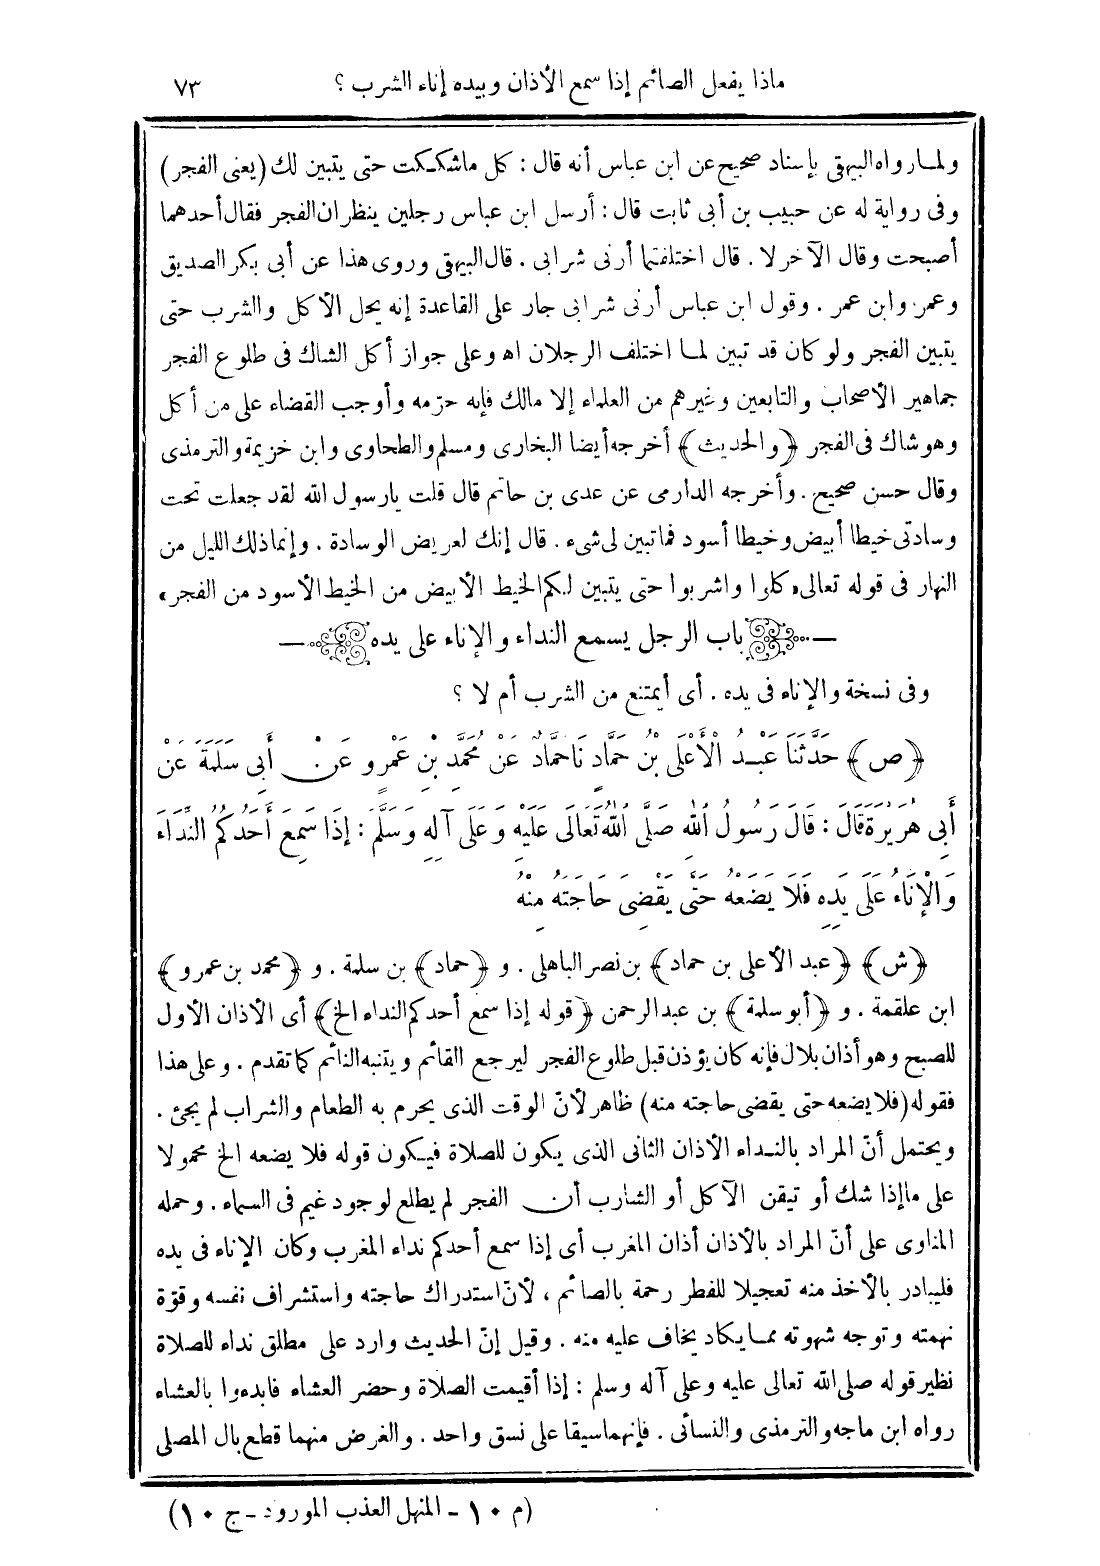 ماذا يفعل الصائم إذا سمع الأذان وبيده إناء الشرب ؟ ٧٣
ولما رواه البيهقى بإسناد صحيح عن ابن عباس أنه قال : كل ماشككت حتى يتبين لك (يعنى الفجر)
وفى رواية له عن حبيب بن أبى ثابت قال : أرسل ابن عباس رجلين ينظران الفجر فقال أحدهما
أصبحت وقال الآخر لا . قال اختلفتما أرنى شرابى . قال البيهقى وروى هذا عن أبى بكر الصديق
وعمر وابن عمر . وقول ابن عباس أرنى شرابى جار على القاعدة إنه يحل الأكل والشرب حتى
يتبين الفجر ولو كان قد تبين لما اختلف الرجلان اه وعلى جواز أكل الشاك فى طلوع الفجر
جماهير الأصحاب والتابعين وغيرهم من العلماء إلا مالك فإنه حرّمه وأوجب القضاء على من أكل
وهو شاك فى الفجر ﴿والحديث﴾ أخرجه أيضا البخارى ومسلم والطحاوى وابن خزيمة والترمذى
وقال حسن صحيح . وأخرجه الدارمى عن عدى بن حاتم قال قلت يارسول الله لقد جعلت تحت
وسادتى خيطا أبيض وخيطا أسود فما تبين لى شىء . قال إنك لعريض الوسادة . وإنما ذلك الليل من
النهار فى قوله تعالى «كلوا واشربوا حتى يتبين لكم الخيط الأبيض من الخيط الأسود من الفجر»
— باب الرجل يسمع النداء والإناء على يده —
وفى نسخة والإناء فى يده . أى أيمتنع من الشرب أم لا ؟
﴿ص﴾ حَدَّثَنَا عَبْدُ الْأَعْلَى بْنُ حَمَّادٍ نَا حَمَّادٌ عَنْ مُحَمَّدِ بْنِ عَمْرٍو عَنْ أَبِى سَلَمَةَ عَنْ
أَبِى هُرَيْرَةَ قَالَ : قَالَ رَسُولُ اللهِ صَلَّى اللهُ تَعَالَى عَلَيْهِ وَعَلَى آلِهِ وَسَلَّمَ : إِذَا سَمِعَ أَحَدُكُمُ النِّدَاءَ
وَالْإِنَاءُ عَلَى يَدِهِ فَلَا يَضَعْهُ حَتَّى يَقْضِىَ حَاجَتَهُ مِنْهُ
﴿ش﴾ ﴿عبد الأعلى بن حماد﴾ بن نصر الباهلى . و ﴿حماد﴾ بن سلمة . و ﴿محمد بن عمرو﴾
ابن علقمة . و ﴿أبو سلمة﴾ بن عبد الرحمن ﴿قوله إذا سمع أحدكم النداء الخ﴾ أى الأذان الأول
للصبح وهو أذان بلال فإنه كان يؤذن قبل طلوع الفجر ليرجع القائم ويتنبه النائم كما تقدم . وعلى هذا
فقوله (فلا يضعه حتى يقضى حاجته منه) ظاهر لأنّ الوقت الذى يحرم به الطعام والشراب لم يجئ .
ويحتمل أنّ المراد بالنداء الأذان الثانى الذى يكون للصلاة فيكون قوله فلا يضعه الخ محمولا
على ماإذا شك أو تيقن الآكل أو الشارب أن الفجر لم يطلع لوجود غيم فى السماء . وحمله
المناوى على أنّ المراد بالأذان أذان المغرب أى إذا سمع أحدكم نداء المغرب وكان الإناء فى يده
فليبادر بالأخذ منه تعجيلا للفطر رحمة بالصائم ، لأنّ استدراك حاجته واستشراف نفسه وقوّة
نهمته وتوجه شهوته مما يكاد يخاف عليه منه . وقيل إنّ الحديث وارد على مطلق نداء للصلاة
نظير قوله صلى الله تعالى عليه وعلى آله وسلم : إذا أقيمت الصلاة وحضر العشاء فابدءوا بالعشاء
رواه ابن ماجه والترمذى والنسائى . فإنهما سيقا على نسق واحد . والغرض منهما قطع بال المصلى
(م ١٠ - المنهل العذب المورود - ج ١٠)